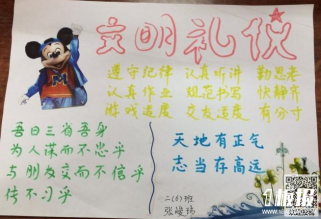 文明礼仪
遵守纪律 认真听讲 勤思考
认真作业 规范书写 快静齐
游戏适度 交友适度 有分寸
吾日三省吾身
为人谋而不忠乎
与朋友交而不信乎
传不习乎
天地有正气
志当存高远
二(6)班
张峻玮
1板报